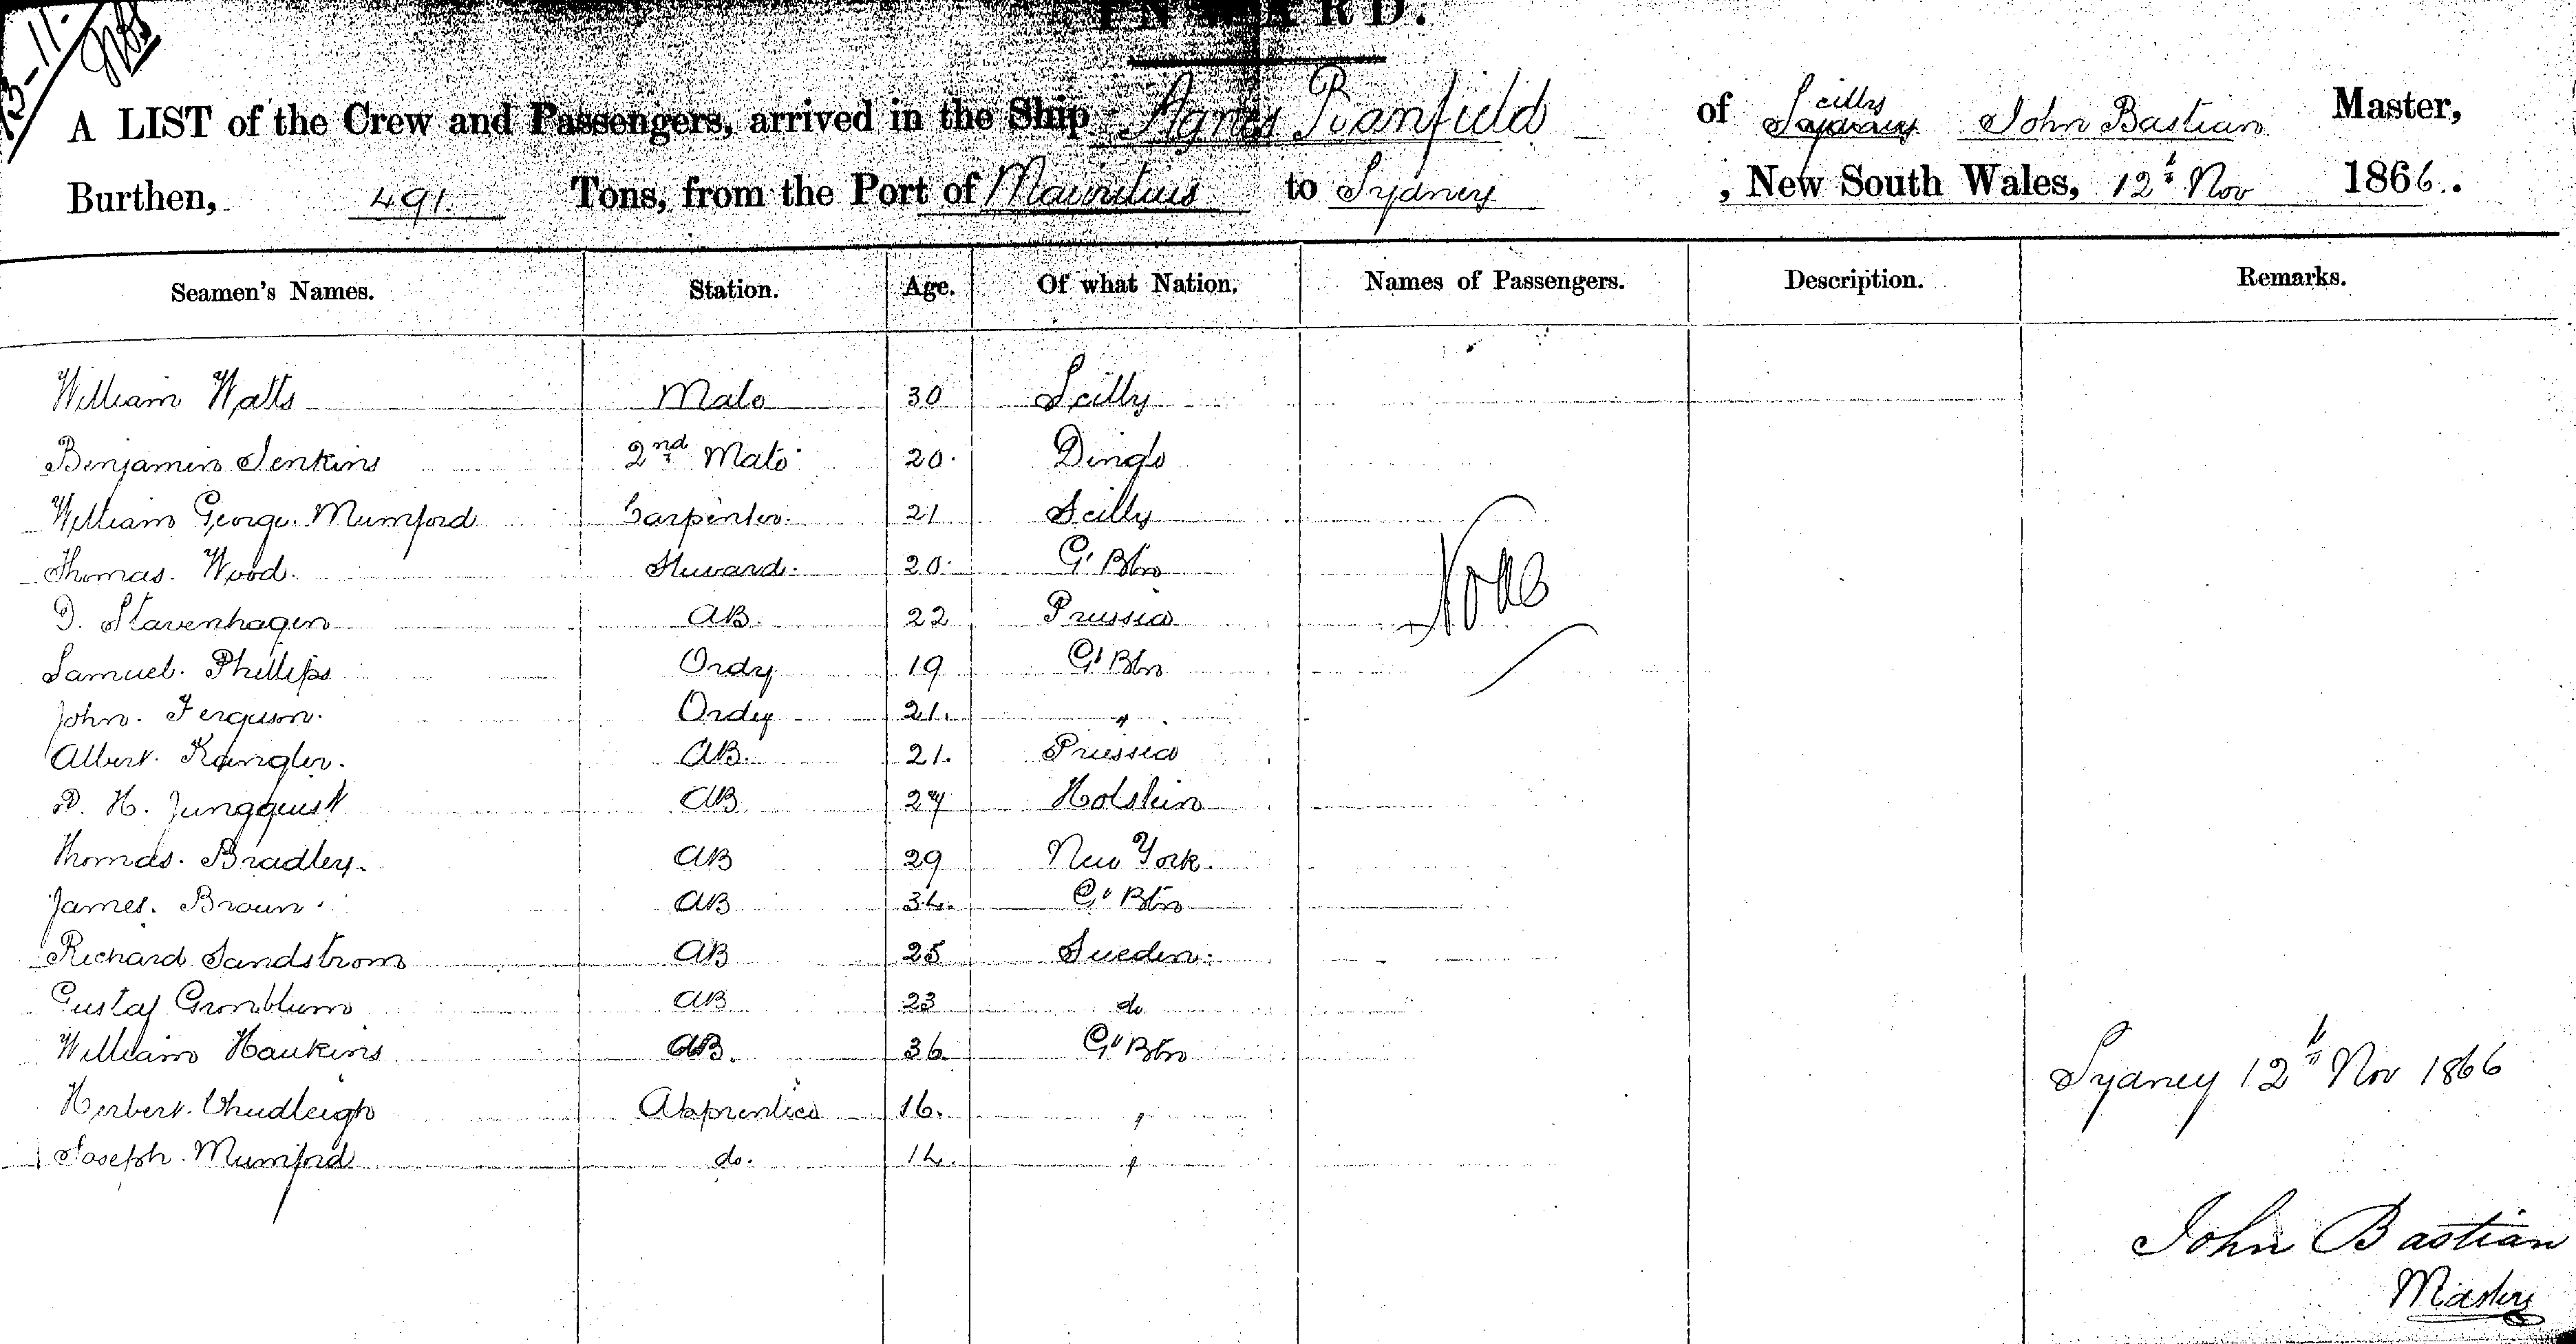 INWARD.
A LIST of the Crew and Passengers, arrived in the Ship Agnes Banfield of Scilly John Bastian Master,
Burthen, 491 Tons, from the Port of Mauritius to Sydney, New South Wales, 12th Nov 1866.
Seamen's Names. Station. Age. Of what Nation. Names of Passengers. Description. Remarks.
William Watts Mate 30 Scilly
Benjamin Jenkins 2nd Mate 20 Dingle
William George Mumford Carpenter 21 Scilly
Thomas Wood Steward 20 Gt Btn
None
D. Stavenhagen AB 22 Prussia
Samuel Phillips Ordy 19 Gt Btn
John Ferguson Ordy 21 "
Albert Kangler AB 21 Prussia
H. Jungquist AB 24 Holstein
Thomas Bradley AB 29 New York
James Brown AB 34 Gt Btn
Richard Sandstrom AB 25 Sweden
Gustaf Gronblum AB 23 do
William Hawkins AB 36 Gt Btn
Herbert Chudleigh Apprentice 16 "
Joseph Mumford do. 14 "
Sydney 12th Nov 1866
John Bastian
Master